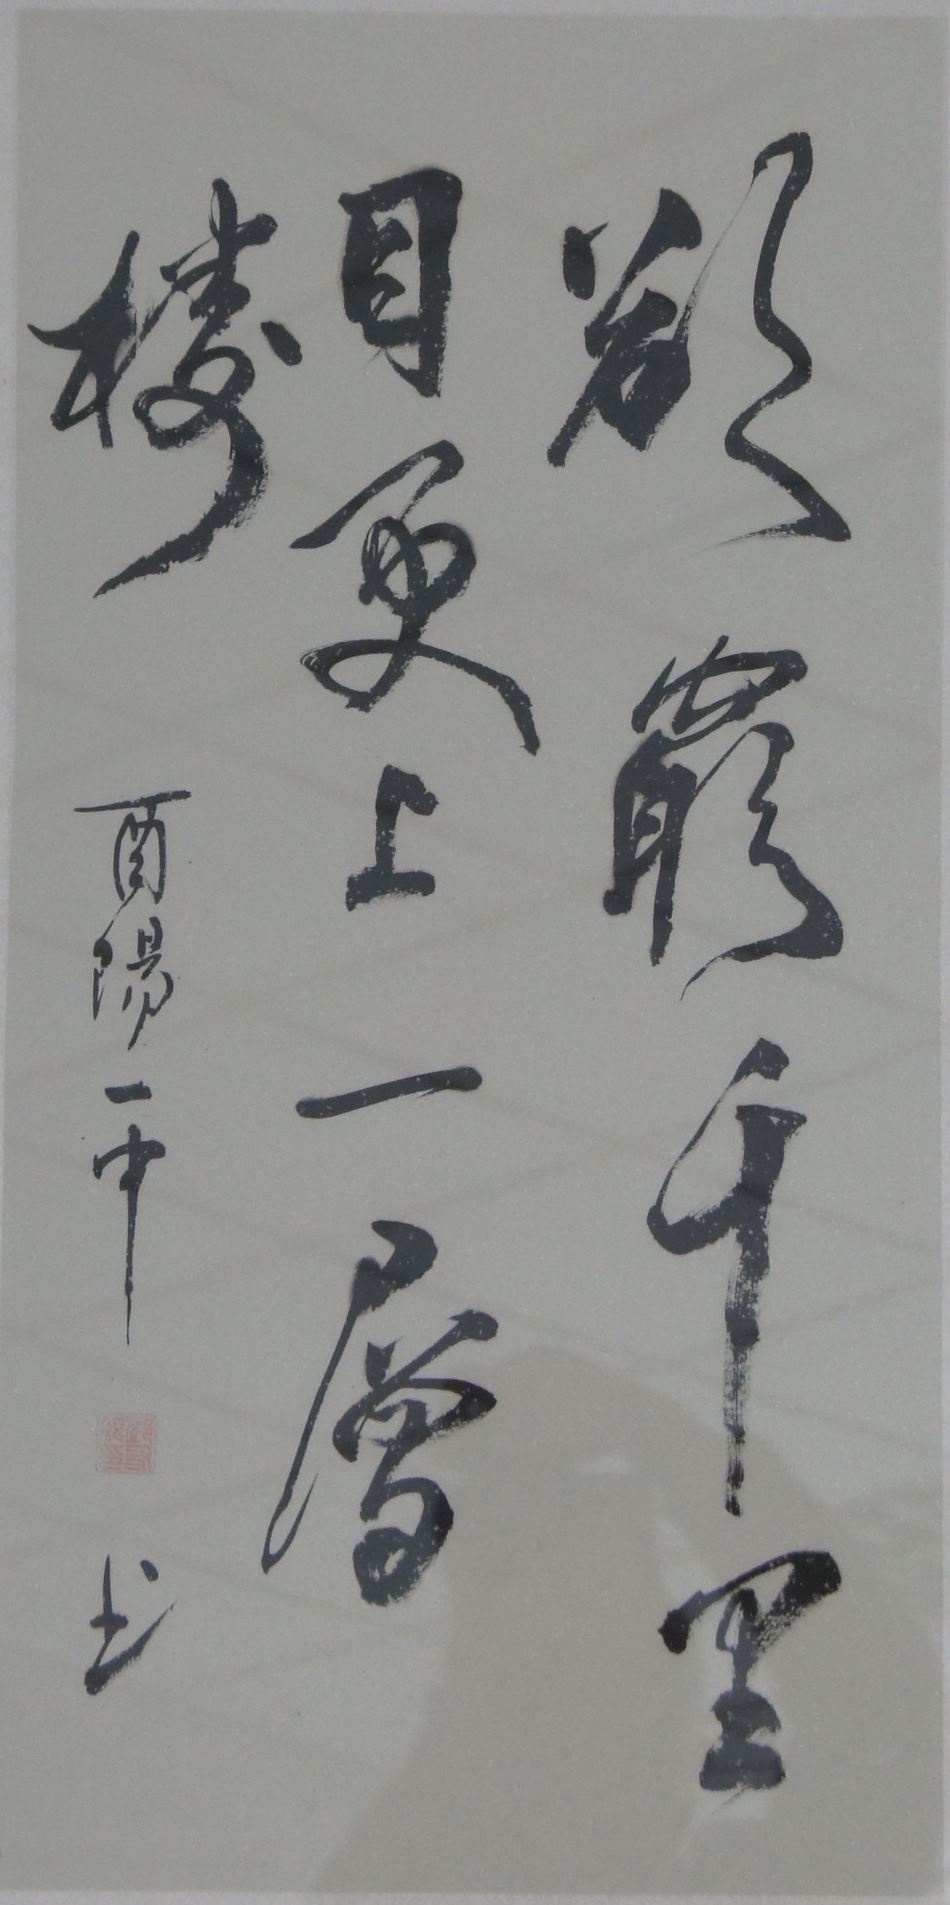 欲窮千里
目更上一層
樓
酉陽一中
书